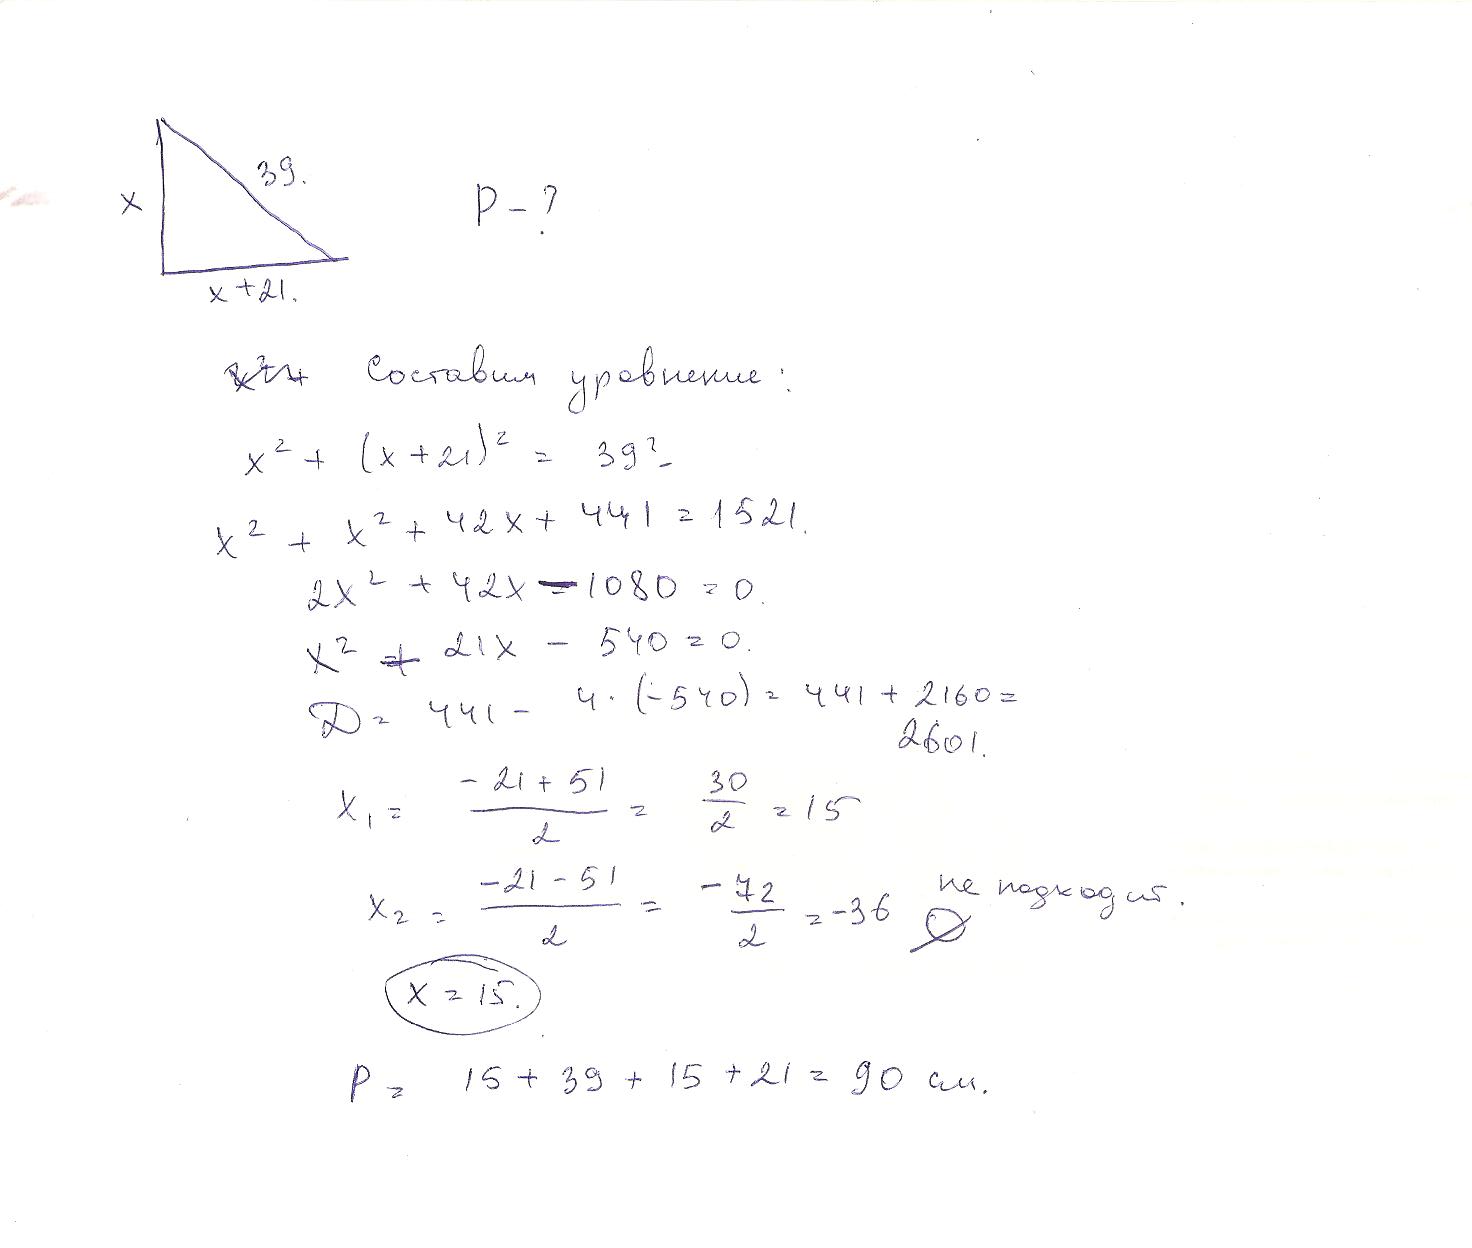 39.
x
P - ?
x + 21.
Составим уравнение:
x² + (x + 21)² = 39²
x² + x² + 42x + 441 = 1521.
2x² + 42x - 1080 = 0.
x² + 21x - 540 = 0.
D = 441 - 4 · (-540) = 441 + 2160 =
2601.
x₁ = (-21 + 51)/2 = 30/2 = 15
x₂ = (-21 - 51)/2 = -72/2 = -36 не подходит.
x = 15.
P = 15 + 39 + 15 + 21 = 90 см.